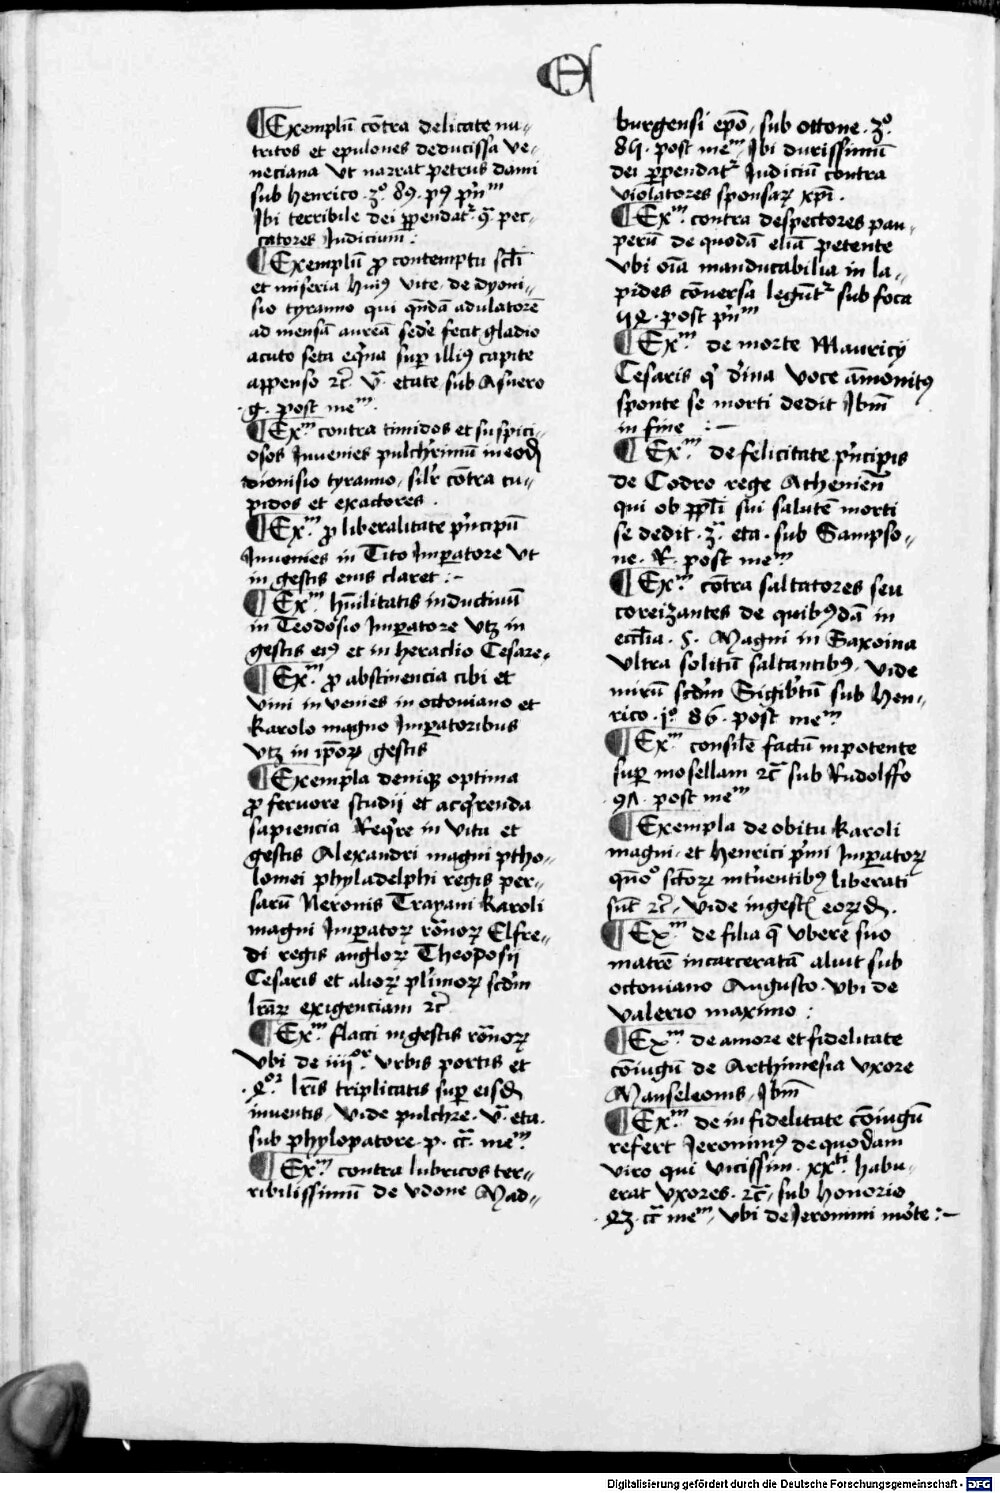 E
¶ Exemplū cōtra delicate nu⸗
tritos et epulones deducissa ve⸗
neciana vt narrat petrus dami
sub henrico · 3º 89 · pꝰ
Ibi terribile dei ꝑpendat᷑ pec⸗
catores Iudicium :
¶ Exemplū ꝓ contemptu sclī
et miseria huiꝰ vite · de dyoni⸗
sio tyranno qui qndā adulatorē
ad mensā aureā sedē fecit gladio
acuto seta eqna suꝑ illiꝰ capite
appenso ⁊c̄ v · etate sub Asuero
· g · post meᵐ ·
¶ Exᵐ contra timidos et suspici⸗
osos Inuenies pulchrimū in eod
dionisio tyranno / silr cōtra cu⸗
pidos et exactores ·
¶ Exᵐ ꝓ liberalitate pncipū
Inuenies in Tito Imꝑatore vt
in gestis eius claret : ~
¶ Exᵐ hūilitatis inductiuū
in Teodosio Imꝑatore vtꝫ in
gestis eiꝰ et in heraclio Cesare ·
¶ Exᵐ ꝓ abstinencia cibi et
vini in venies in octouiano et
karolo magno Imꝑatoribus
vtꝫ in ip̄oꝝ gestis
¶ Exempla deniqꝫ optima
ꝓ feruore studij et acqrenda
sapiencia Reqre in vita et
gestis Alexandri magni ptho⸗
lomei phyladelphi regis per⸗
sarū Neronis Trayani karoli
magni Imꝑatoꝝ rōnoꝝ Elfre⸗
di regis angloꝝ Theoposij
Cesaris et alioꝝ plimoꝝ scdm
lraꝝ exigenciam ⁊c̄
¶ Exᵐ flacci in gestis rōnoꝝ
vbi de iiijᵒʳ vrbis portis et
lrīs triplicatis suꝑ eisd
inuentis / vide pulchre · v · eta ·
sub phylopatore · p · meᵐ
¶ Exᵐ contra lubricos ter⸗
ribilissimū de vdone Mad⸗
burgensi ep̄o / sub ottone · 3º
post meᵐ Ibi durissimū
dei ꝑpendat᷑ Iudiciū contra
violatores sponsaꝝ xp̄i ·
¶ Exᵐ contra despectores pau⸗
perū de quodā eliā petente
vbi oīa manducabilia in la⸗
pides cōuersa legūt᷑ sub foca
post
¶ Exᵐ de morte Mauricij
Cesaris q diīna voce āmonitꝰ
sponte se morti dedit Ibm̄
in fine : ~
¶ Exᵐ de felicitate pncipis
de Codro rege Athenień
qui ob ppl̄i sui salutē morti
se dedit · 3 · eta · sub Sampso⸗
ne · R · post meᵐ
¶ Exᵐ cōtra saltatores seu
coreizantes de quibꝰdā in
eccl̄ia · S · Magni in Saxoīna
vltra solitū saltantibꝰ / vide
mirū scdm Sigibtū sub Hen⸗
rico · jº 86 · post meᵐ
¶ Exᵐ consilē factū in potente
suꝑ mosellam ⁊c̄ sub Rudolffo
9Λ · post meᵐ
¶ Exempla de obitu karoli
magni · et henrici pmi Imꝑatoꝝ
qnoº sctoꝝ intuentibꝰ liberati
sūt ⁊c̄ / vide in gest eoꝝd ·
¶ Exᵐ de filia q̄ vbere suo
matrē incarceratā aluit sub
octouiano Augusto · vbi de
valerio maximo :
¶ Exᵐ de amore et fidelitate
cōiugū de Arthimesia vxore
Manseleonis / Ibm̄
¶ Exᵐ de in fidelitate cōiugū
refert Ieronimꝰ de quodam
viro qui vicissim · xxᵗⁱ habu⸗
erat vxores · ⁊c̄ / sub honorio
meᵐ / vbi de Ieronimi mōte : ~
Digitalisierung gefördert durch die Deutsche Forschungsgemeinschaft - DFG